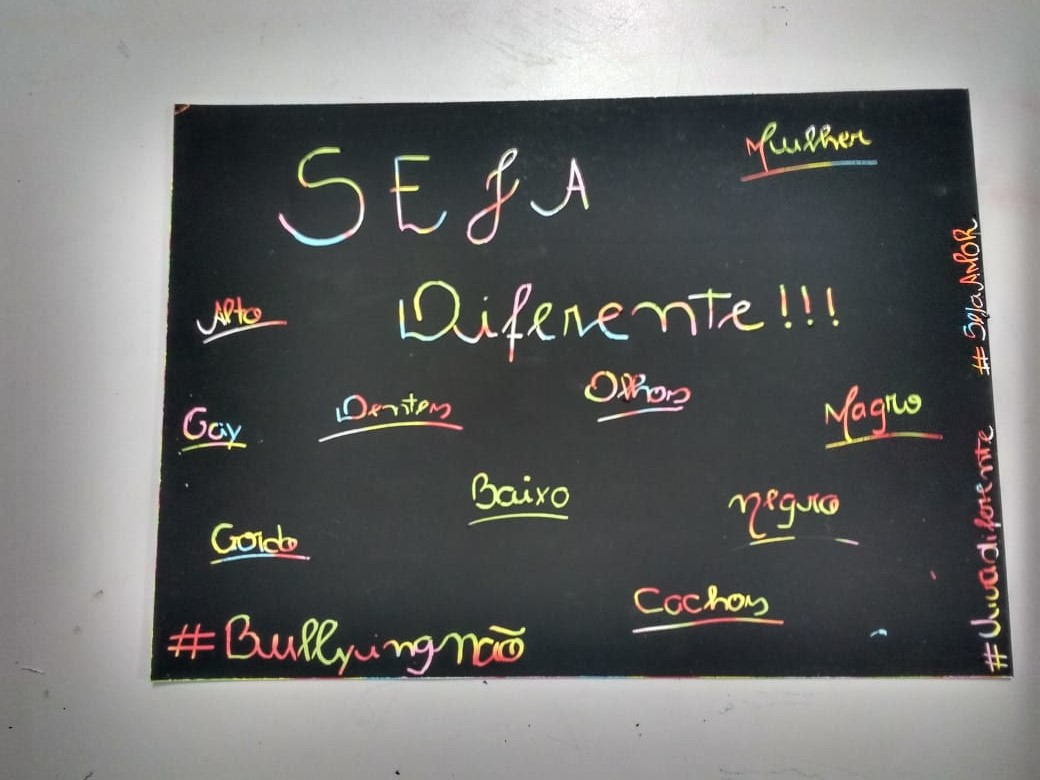 Mulher
SEJA
Diferente!!!
Alto
Olhos
Dentes
Magro
Gay
Baixo
negro
Gordo
Cachos
#Bullyingnão
#SejaAMOR
#Vivadiferente